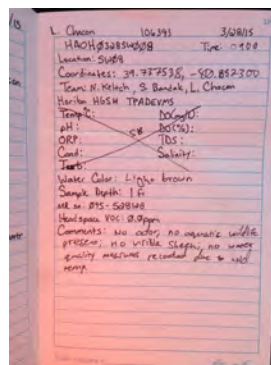 L. Chacon 106393 3/28/15
HAOHØ328SWØØ8 Time: 0900
Location: SWØ8
Coordinates: 39.737538, -80.852300
Team: N. Kelsch, S. Bandak, L. Chacon
Horiba
Temp°C: DO(mg/L):
pH: DO(%):
ORP: TDS:
Cond: Salinity:
Turb:
Water Color: Light brown
Sample Depth: 1 ft
Headspace VOC: Ø.Øppm
Comments: No odor; no aquatic wildlife
present; no visible sheen; no water
quality measures recorded due to cold
temp